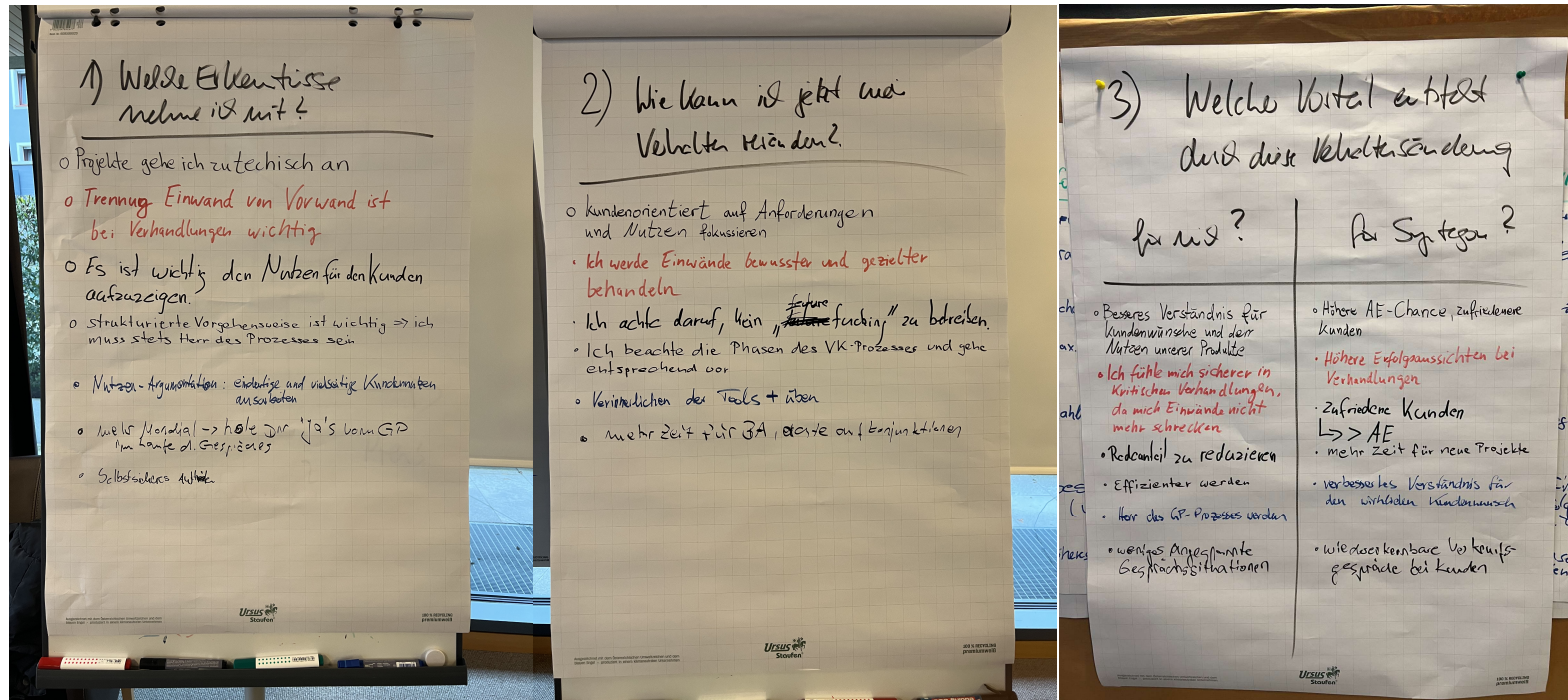 1) Welche Erkentisse
nehme ich mit?
o Projekte gehe ich zu techisch an
o Trennung Einwand von Vorwand ist
bei Verhandlungen wichtig
o Es ist wichtig den Nutzen für den Kunden
aufzuzeigen.
o strukturierte Vorgehensweise ist wichtig => ich
muss stets Herr des Prozesses sein
• Nutzen-Argumentation: eindeutige und vielseitige Kundennutzen
ausarbeiten
• mehr Mondial -> hole Dir 'ja's vom GP
im Laufe d. Gespräches
• Selbstsicheres
Ursus
Staufen
100 % RECYCLING
premiumweiß
2) Wie kann ich jetzt mein
Verhalten verändern?
o kundenorientiert auf Anforderungen
und Nutzen fokussieren
• Ich werde Einwände bewusster und gezielter
behandeln
feature
• Ich achte darauf, kein „fucking" zu betreiben.
• Ich beachte die Phasen des VK-Prozesses und gehe
entsprechend vor
• Verinnerlichen der Tools + üben
• mehr Zeit für BA, achte auf Konjunktionen
Ursus
Staufen
100 % RECYCLING
premiumweiß
3) Welcher Vorteil entsteht
durch diese Verhaltensänderung
für mich?
• Besseres Verständnis für
Kundenwünsche und den
Nutzen unserer Produkte
• Ich fühle mich sicherer in
kritischen Verhandlungen,
da mich Einwände nicht
mehr schrecken
• Redeanteil zu reduzieren
• Effizienter werden
• Herr des GP-Prozesses werden
• weniger Angespannte
Gesprächssituationen
für Syntegon?
• Höhere AE-Chance, zufriedenere
Kunden
• Höhere Erfolgsaussichten bei
Verhandlungen
• zufriedene Kunden
↳>> AE
• mehr Zeit für neue Projekte
• verbessertes Verständnis für
den wirklichen Kundenwunsch
• wiedererkennbare Verkaufs-
gespräche bei Kunden
Ursus
Staufen
100 % RECYCLING
premiumweiß